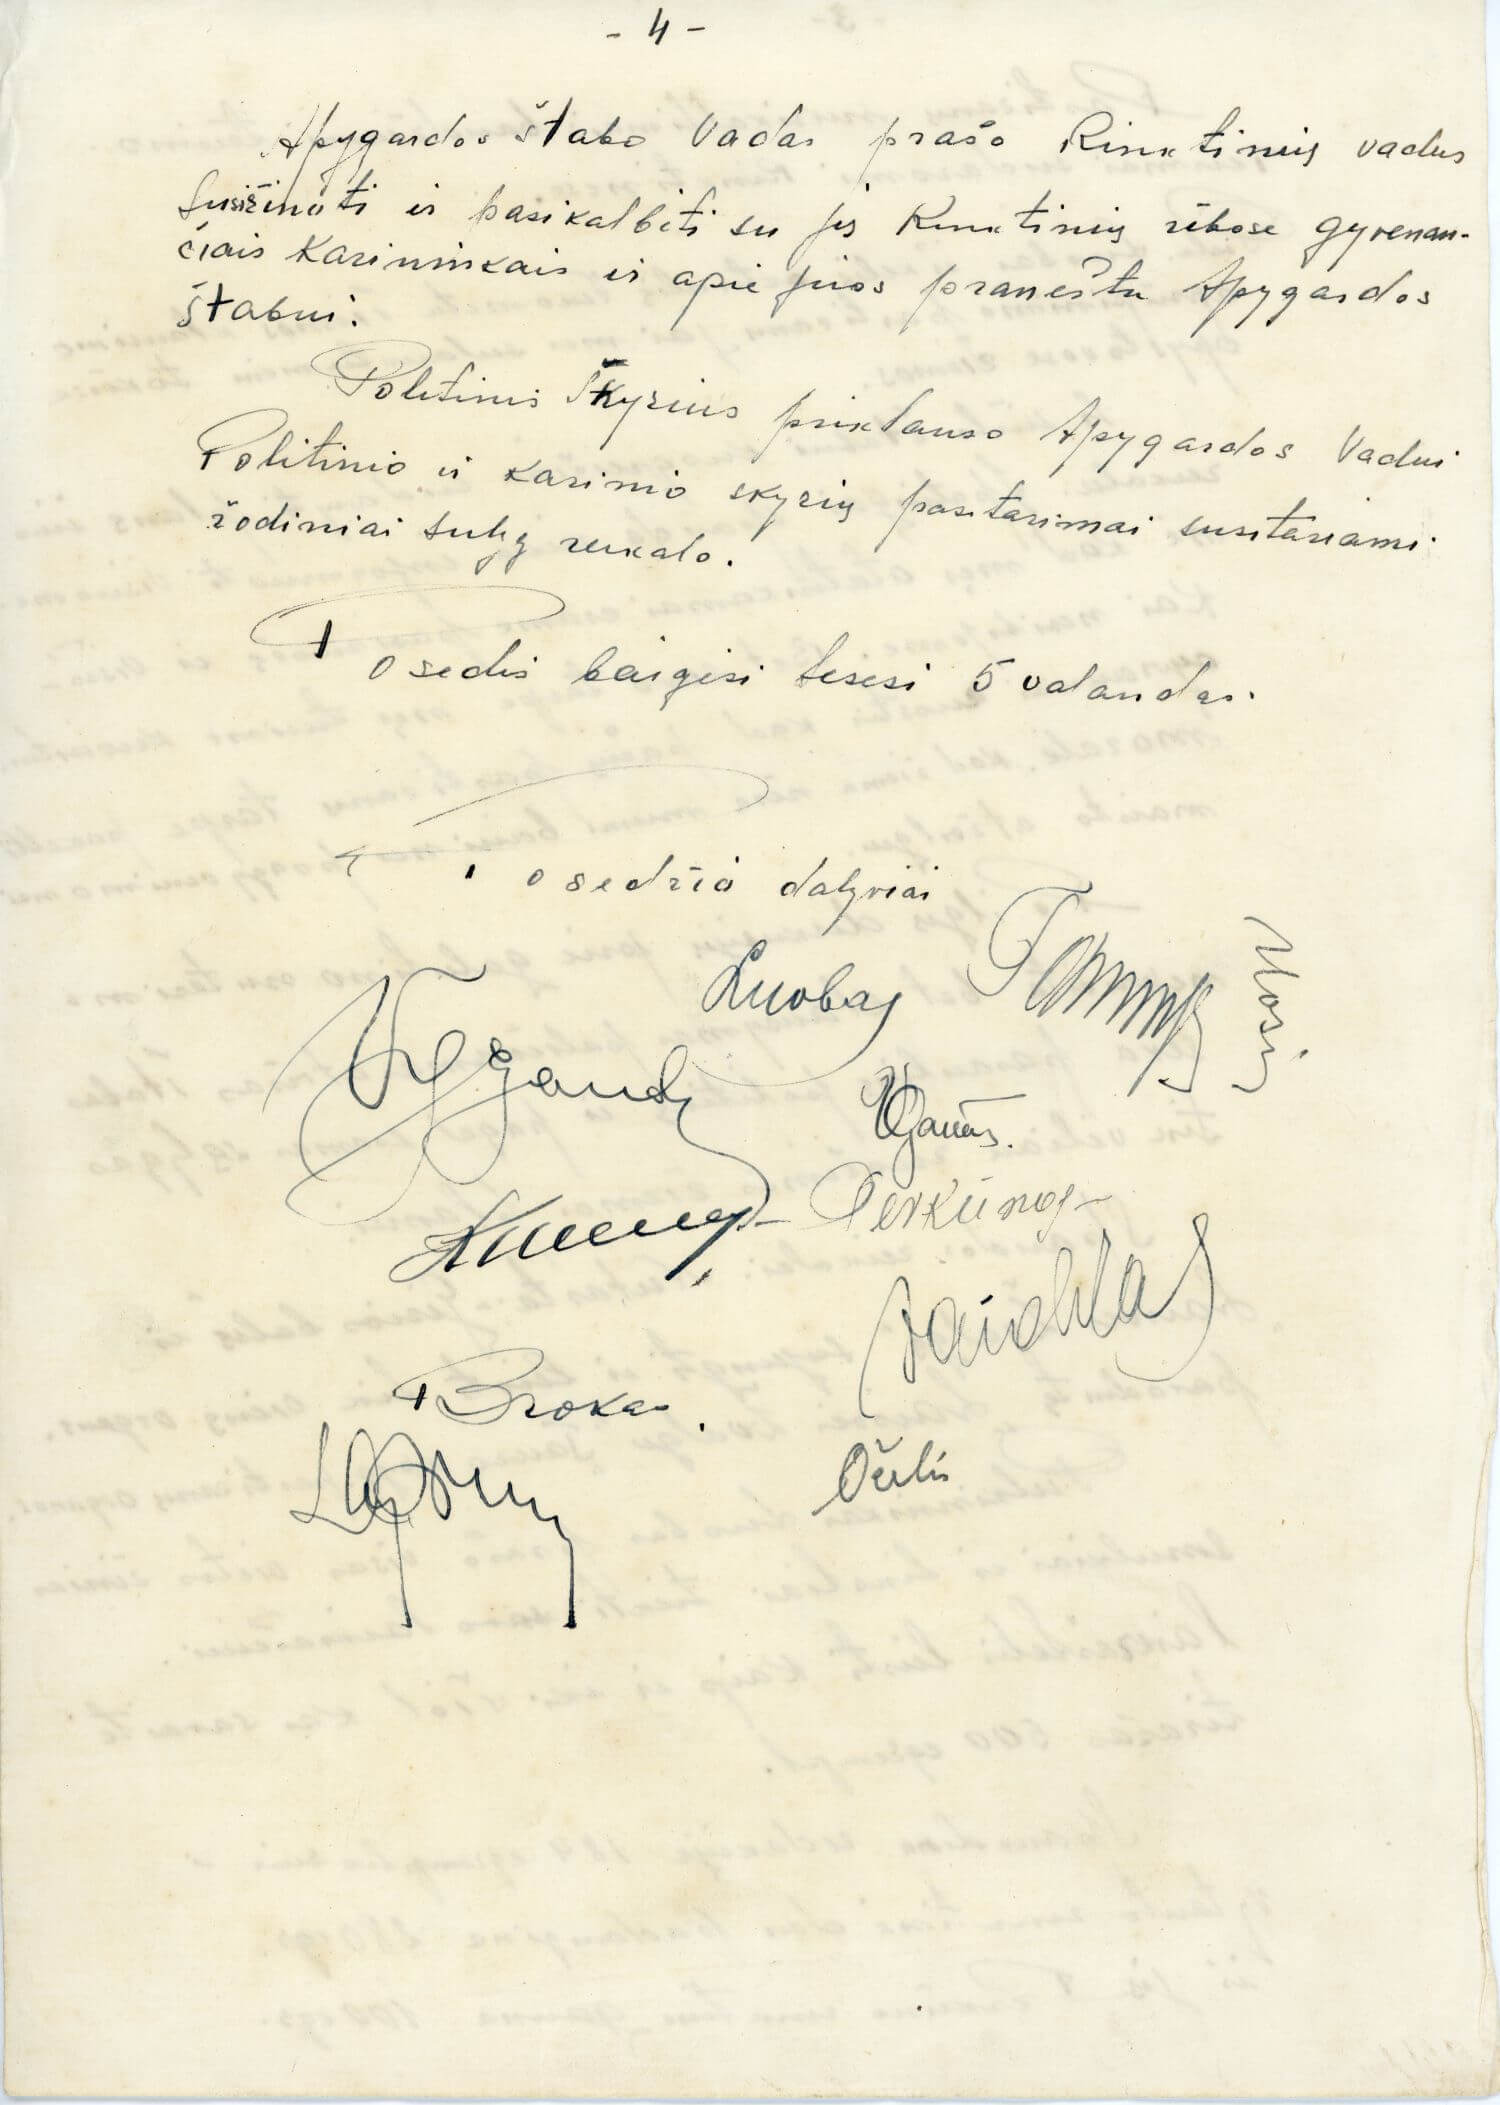 - 4 -
Apygardos štabo Vadas prašo Rinktinių vadus
susižinoti ir pasikalbėti su jų Rinktinių ribose gyvenan-
čiais Karininkais ir apie juos praneštu Apygardos
štabui.
Politinis Skyrius priklauso Apygardos Vadui
Politinio ir karinio skyrių pasitarimai susitariami
žodiniai sulyg reikalo.
Posedis baigėsi tesėsi 5 valandas.
Posedžio dalyviai
Luobas
Uosis
Perkūnas
Vaidila
Broka
Očelis